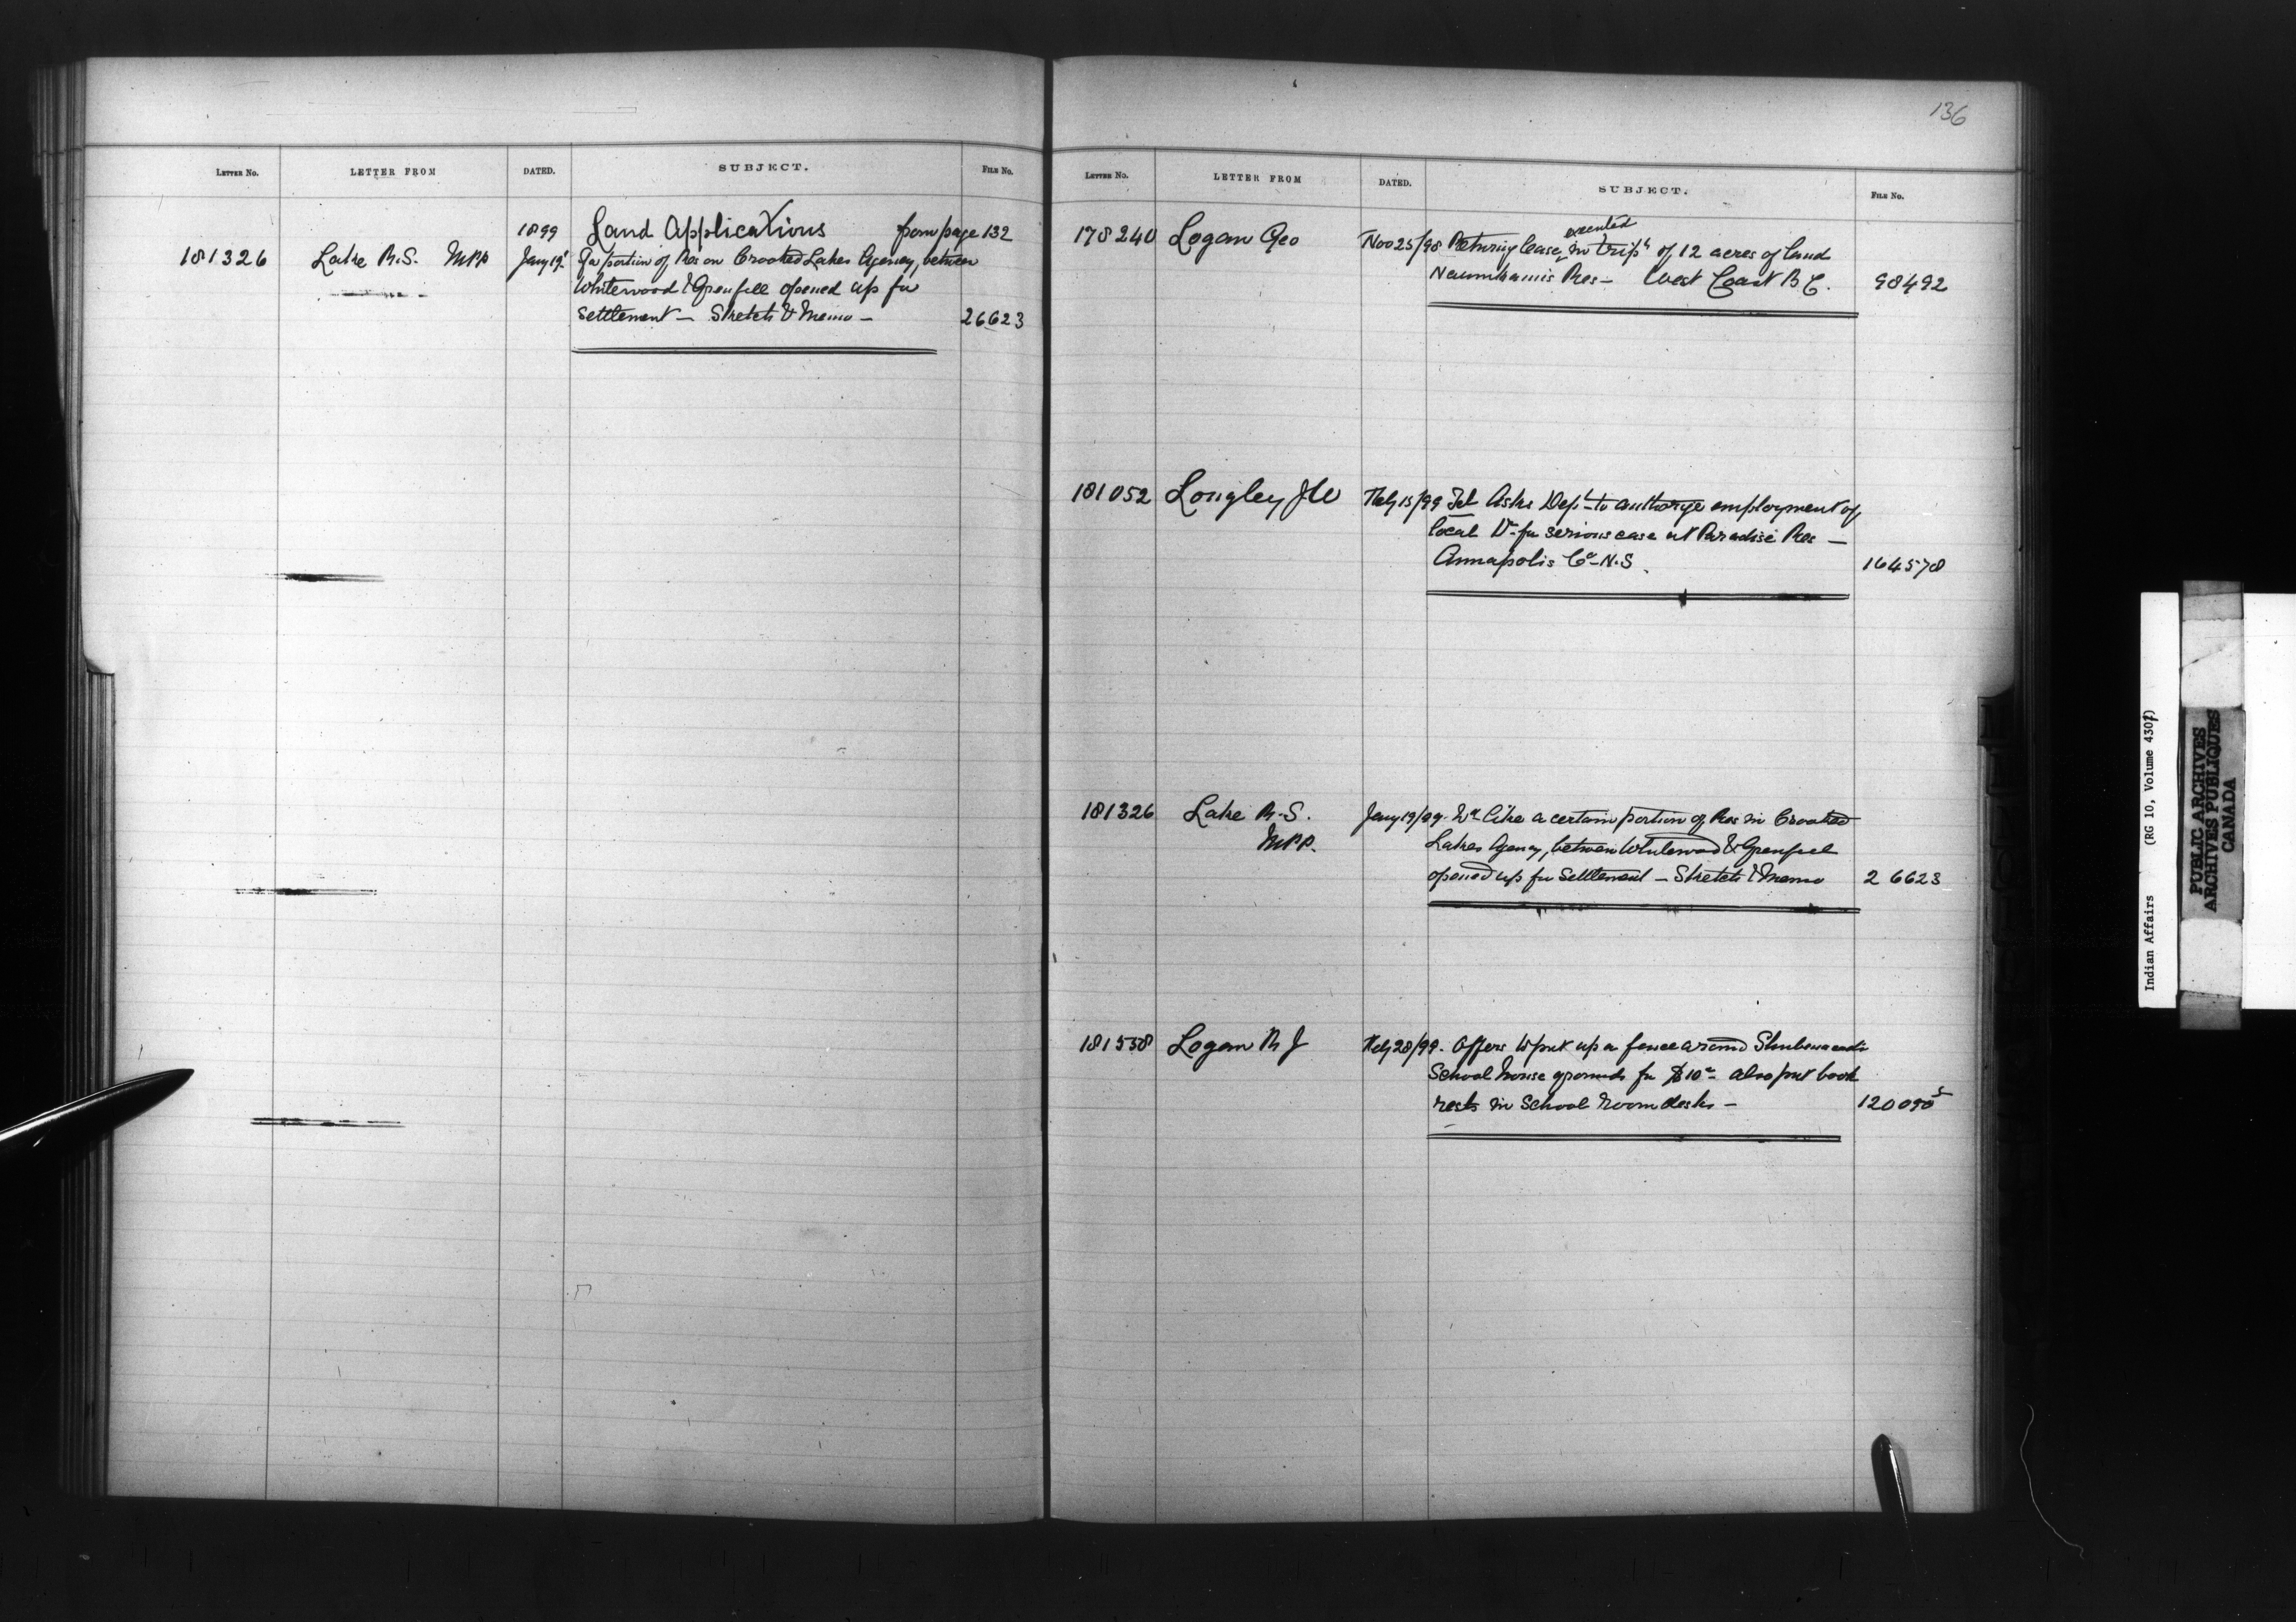 136
LETTER NO. LETTER FROM DATED. SUBJECT. FILE NO.
1899 Land Applications from page 132
181326 Lake R.S. MPP Jany 19 for portion of Res on Crooked Lakes Agency, between
Whitewood & Grenfell opened up for
settlement — Sketch & Memo — 26623
LETTER NO. LETTER FROM DATED. SUBJECT. FILE NO.
executed
178240 Logan Geo Nov 25/98 Returning lease in tripe of 12 acres of land
Res — West Coast B C. 98492
181052 Longley J W Feby 15/99 Tel Asks Dept to authorize employment of
local Dr for serious case at Paradise Res —
Annapolis Co N.S. 164578
181326 Lake R.S. Jany 19/99. Wd like a certain portion of Res in Crooked
MPP. Lakes Agency, between Whitewood & Grenfell
opened up for settlement — Sketch & Memo 26623
181558 Logan R J Feby 28/99. Offers to put up a fence around Shubenacadie
School house grounds for $10 — also put book
rests in School room desks — 120090
Indian Affairs (RG 10, Volume 4307)
PUBLIC ARCHIVES
ARCHIVES PUBLIQUES
CANADA